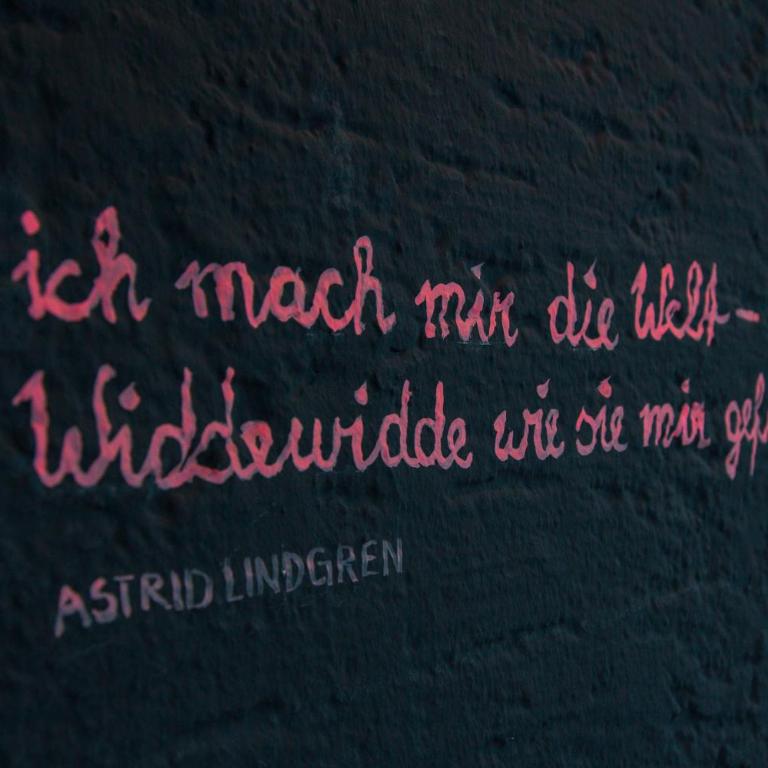 ich mach mir die Welt -
Widdewidde wie sie mir
ASTRID LINDGREN